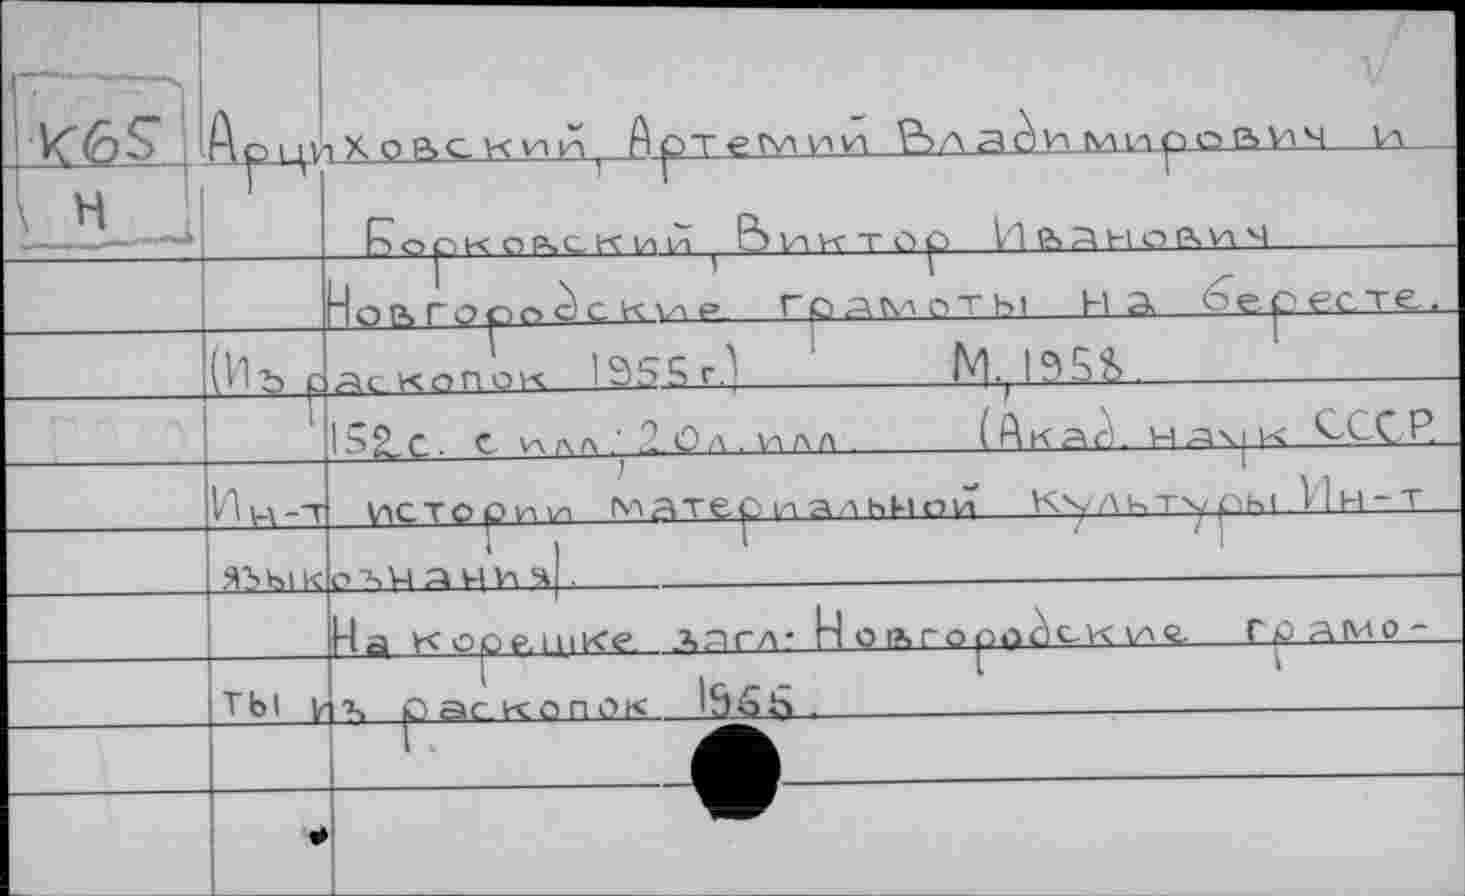 К65 Арциховский, Артемий Владимирович и
Н
Борковский, Виктор Иванович
Новгородские грамоты на бересте.
(Из раскопок 1955 г.) М., 1958.
152 с. с илл.; 20 л. илл. (Акад. наук СССР.
Ин-т истории материальной культуры. Ин-т
языкознания).
На корешке загл: Новгородские грамо-
ты из раскопок 1955.